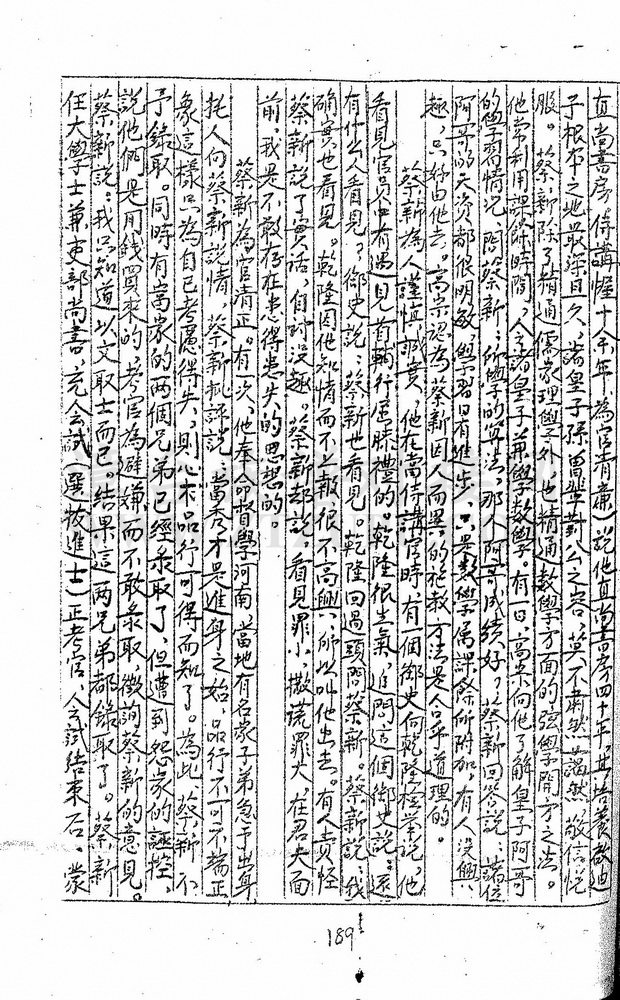 直尚書房侍講握十余年為官清廉）說他直尚書房四十年，其培養啟迪
子根本之地最深且久，諸皇子孫曾輩對公之容，莫不肅然藹然敬信悅
服。蔡新除了精通儒家理學外也精通數學方面的弦學開方之法。
他常利用課餘時間，令諸皇子兼學數學。有一日，高宗向他了解皇子阿哥
的學習情況，問蔡新：所學的算法，那个阿哥成績好，蔡新回答說：諸位
阿哥的天資都很明敏，學習日有進步，只是數學屬課餘所附加，有人沒興
趣，只好由他去。高宗認為蔡新因人而異的施教方法是合乎道理的。
蔡新為人謹慎誠實，他在當侍講官時，有一個御史向乾隆檢舉說，他
看見官員中有遇見首輔行屈膝禮的。乾隆很生氣，追問這個御史說：還
有什么人看見？御史說：蔡新也看見。乾隆回過頭問蔡新。蔡新說：我
确實也看見。乾隆因他知情而不上報很不高興，所以叫他出去。有人責怪
蔡新說了實話，自討沒趣。蔡新却說：看見罪小，撒謊罪大，在君父面
前，我是不敢存在患得患失的思想的。
蔡新為官清正。有一次，他奉命督學河南，當地有名家子弟急于出身
托人向蔡新說情，蔡新批評說：當秀才是進身之始，品行不可不端正
象這樣只為自己考慮得失，則心术品行可得而知了。為此，蔡新不
予錄取。同時有富家的兩個兄弟已經录取了，但遭到怨家的誣控，
說他們是用錢買來的，考官為避嫌而不敢录取，徵詢蔡新的意見。
蔡新說：我只知道以文取士而已。結果這兩兄弟都錄取了。蔡新
任大學士兼吏部尚書，充会試（選拔進士）正考官，会試結束后，蒙
189